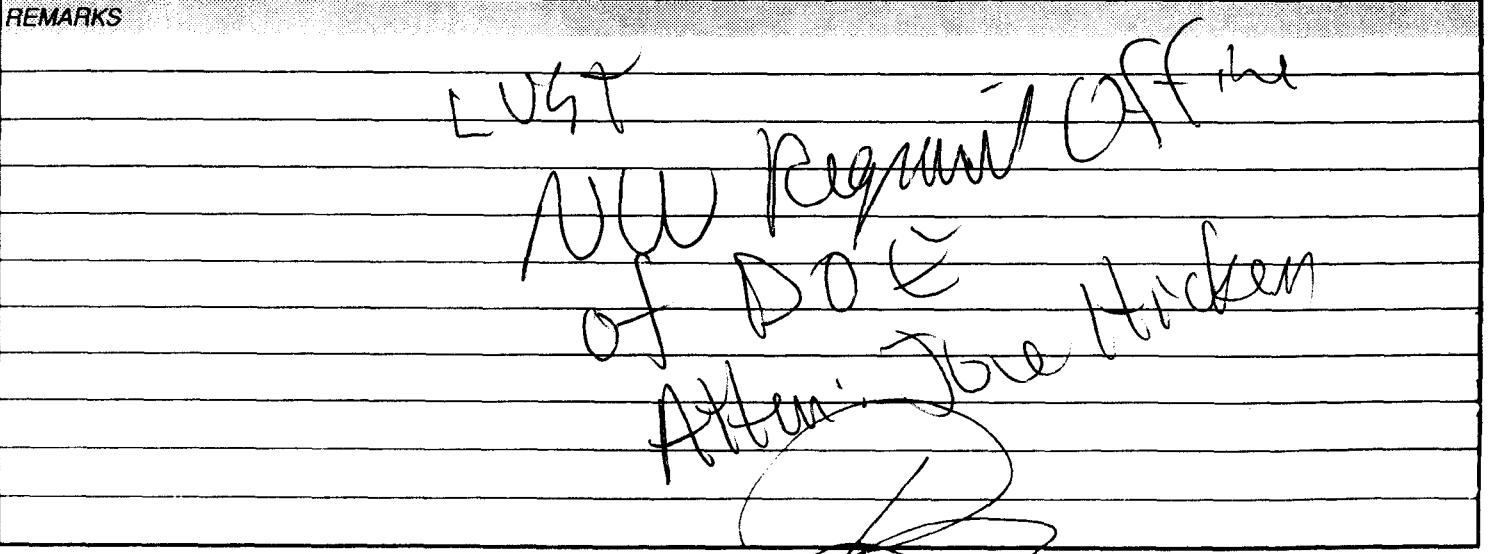 REMARKS
LUST
NW Regional Office
of DOE
Attn: Joe Hicken